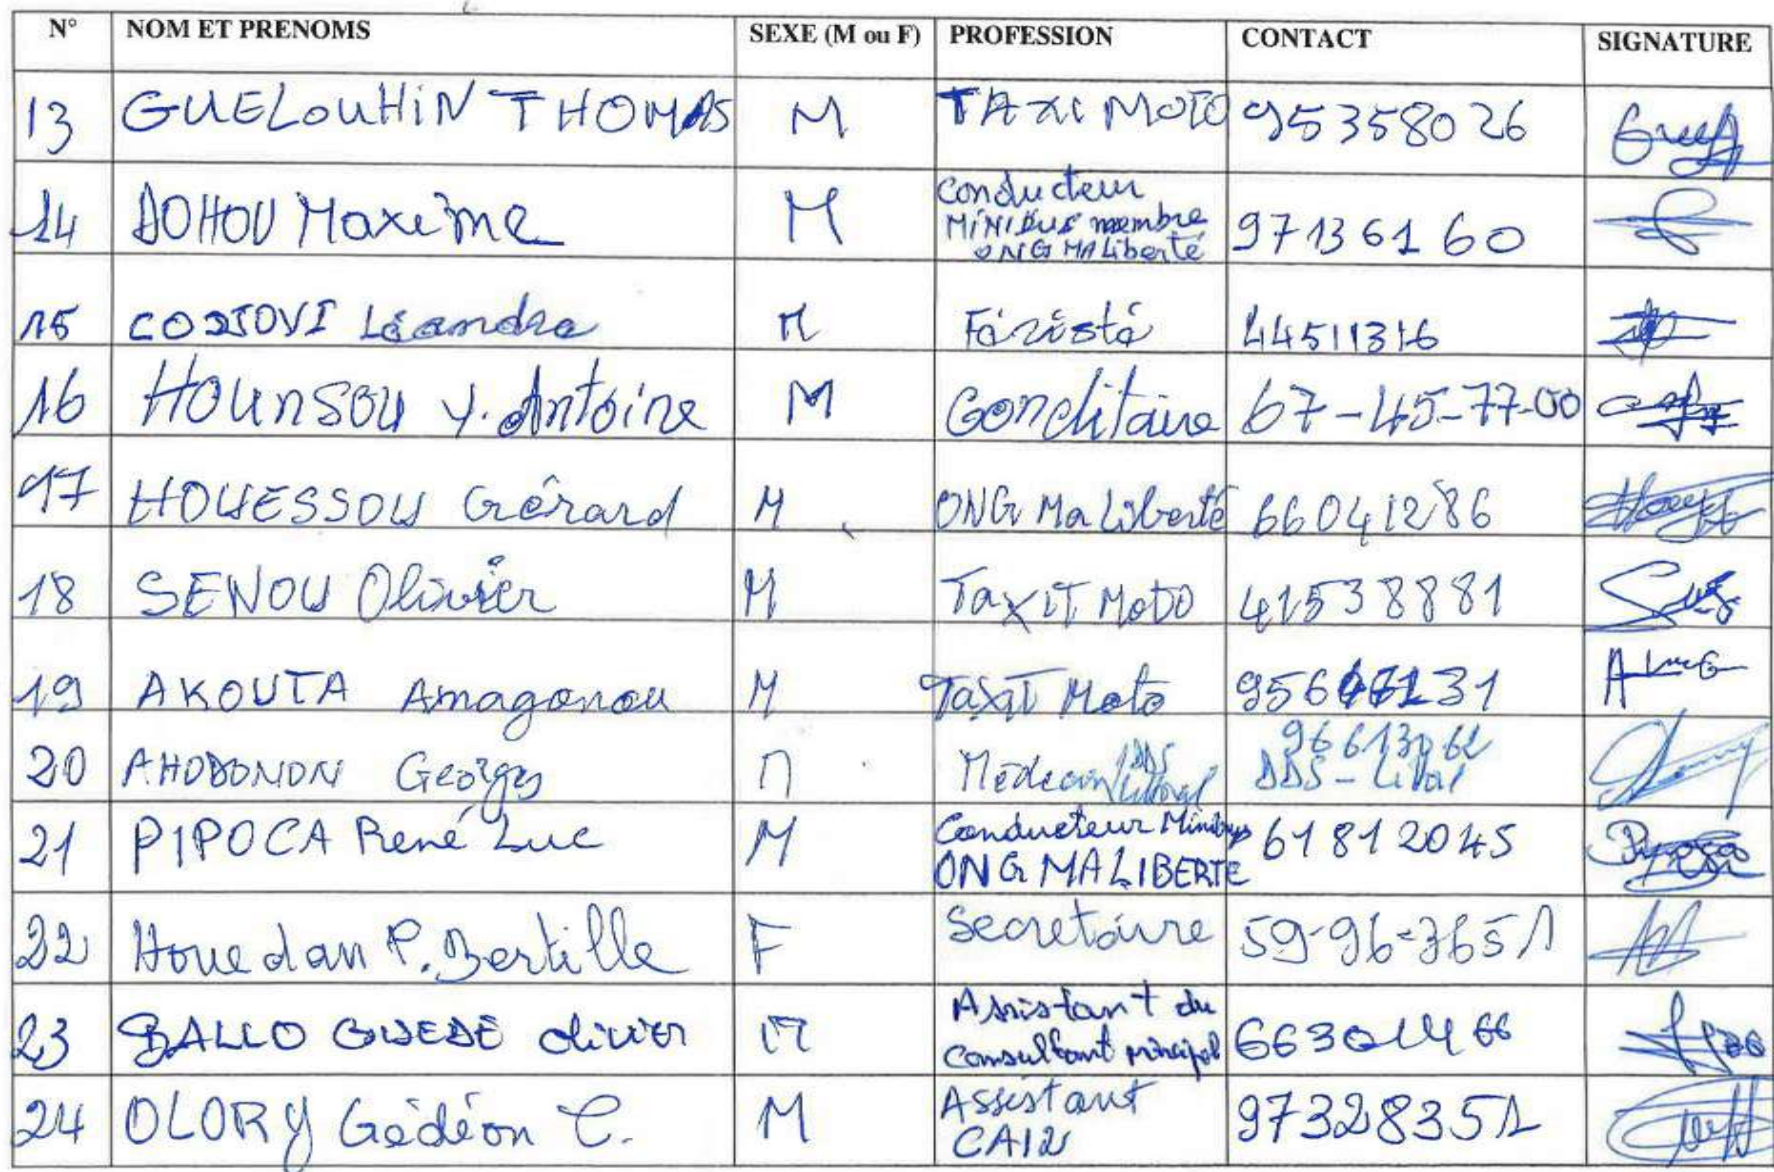 N° NOM ET PRENOMS SEXE (M ou F) PROFESSION CONTACT SIGNATURE
13 GUELOUHIN THOMAS M TAXI MOTO 95358026
14 DOHOU Maxime M Conducteur
MINIBUS membre
ONG MALiberté 97136160
15 CODJOVI Léandre M 44511316
16 HOUNSOU Y. Antoine M 67-45-77-00
17 HOUESSOU Gérard M ONG Ma Liberté 66041286
18 SENOU Olivier M TaxiT Moto 41538881
19 AKOUTA Amaganou M TaxiT Moto
20 Georges M Médecin DDS
Littoral
DDS-Littoral
21 PIPOCA René Luc M Conducteur Minibus
ONG MALIBERTE 61812045
22 Houedan P. Bertille F Secretaire 59-96-3651
23 BALLO GUEDE Olivier M Assistant du
Consultant principal 66301466
24 OLORY Gédéon C. M Assistant 97328351